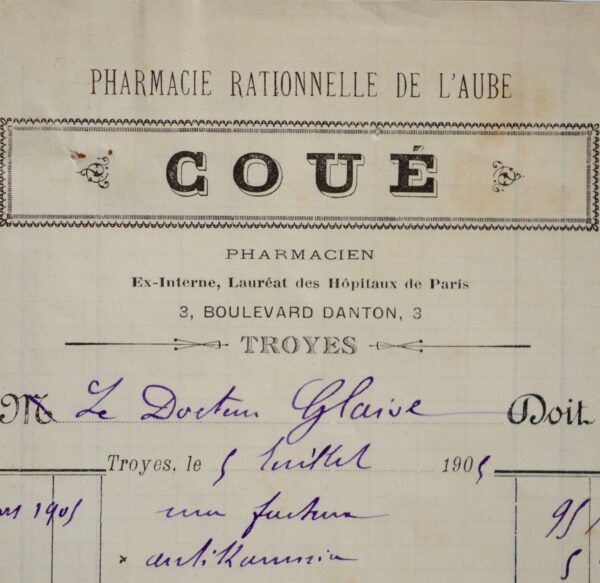 PHARMACIE RATIONNELLE DE L'AUBE
COUÉ
PHARMACIEN
Ex-Interne, Lauréat des Hôpitaux de Paris
3, BOULEVARD DANTON, 3
TROYES
M Le Docteur Glaive Doit
Troyes, le 5 Juillet 1905
1905 ma facture 95
× antikamnia 5